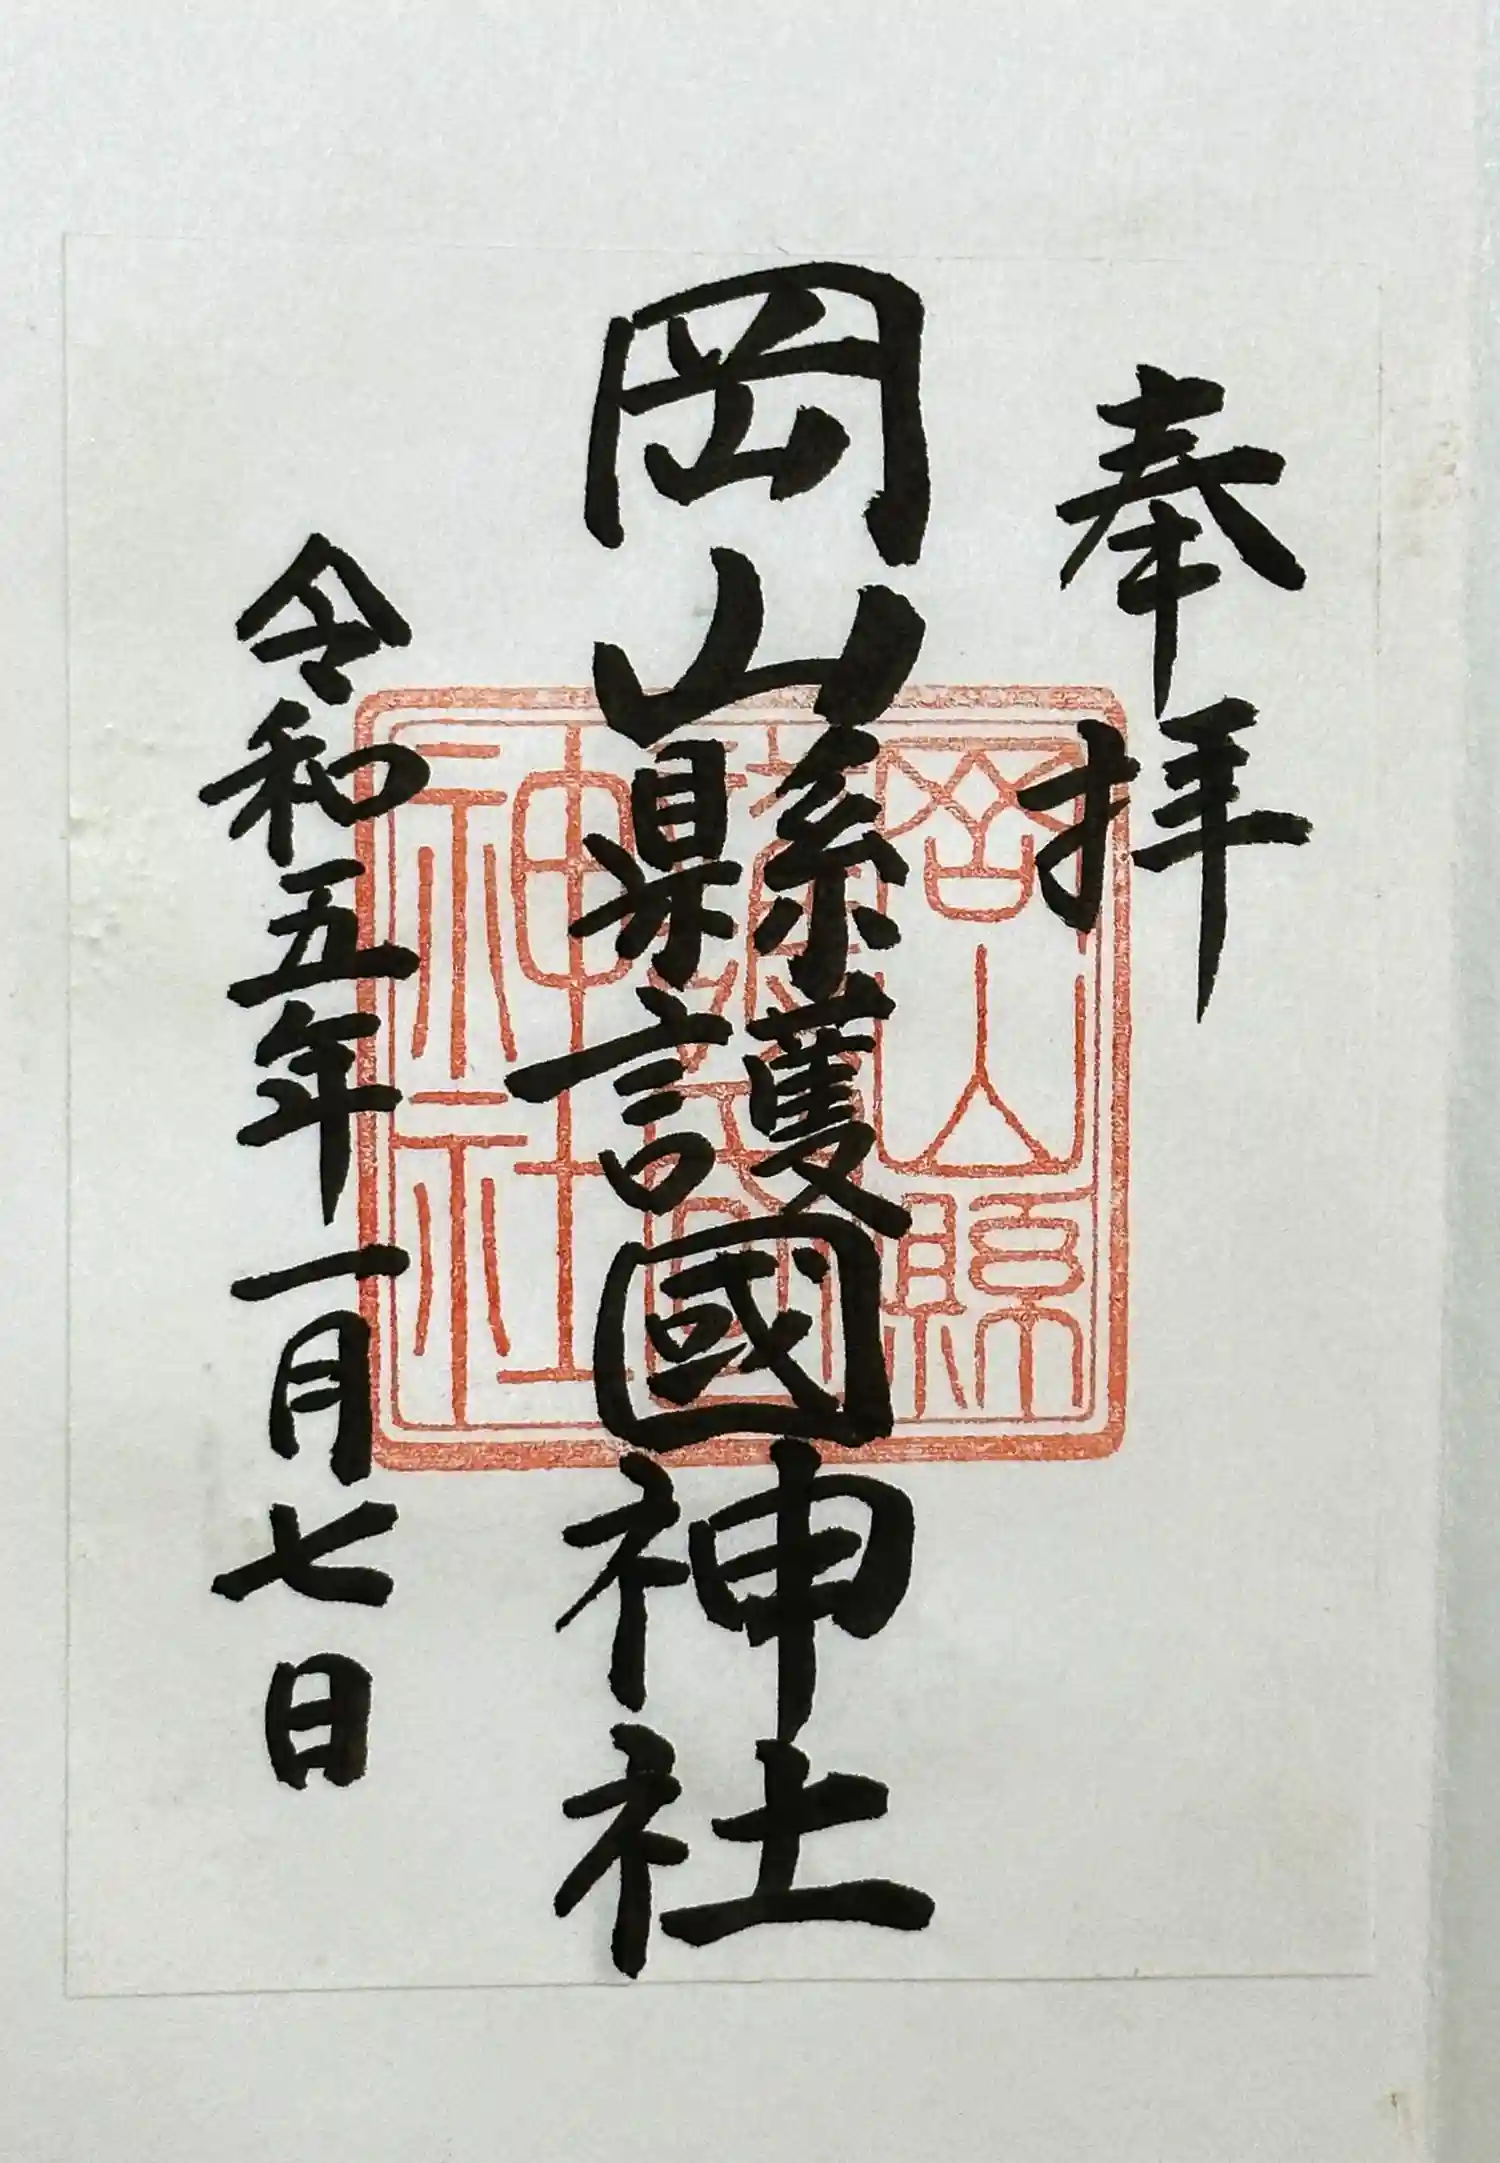 奉拝
岡山縣護國神社
令和五年一月七日
岡山縣
護國
神社